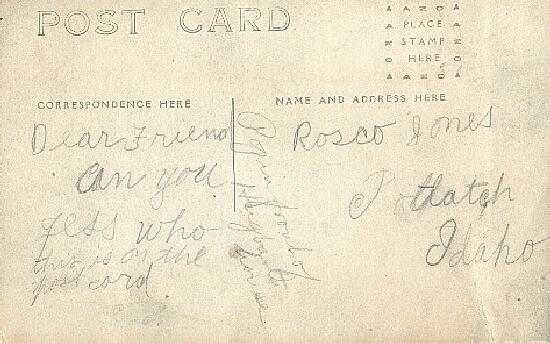 POST CARD
PLACE
STAMP
HERE
CORRESPONDENCE HERE
NAME AND ADDRESS HERE
Dear Friend
Can you
gess who
this is on the
post card
Rosco Jones
Potlatch
Idaho